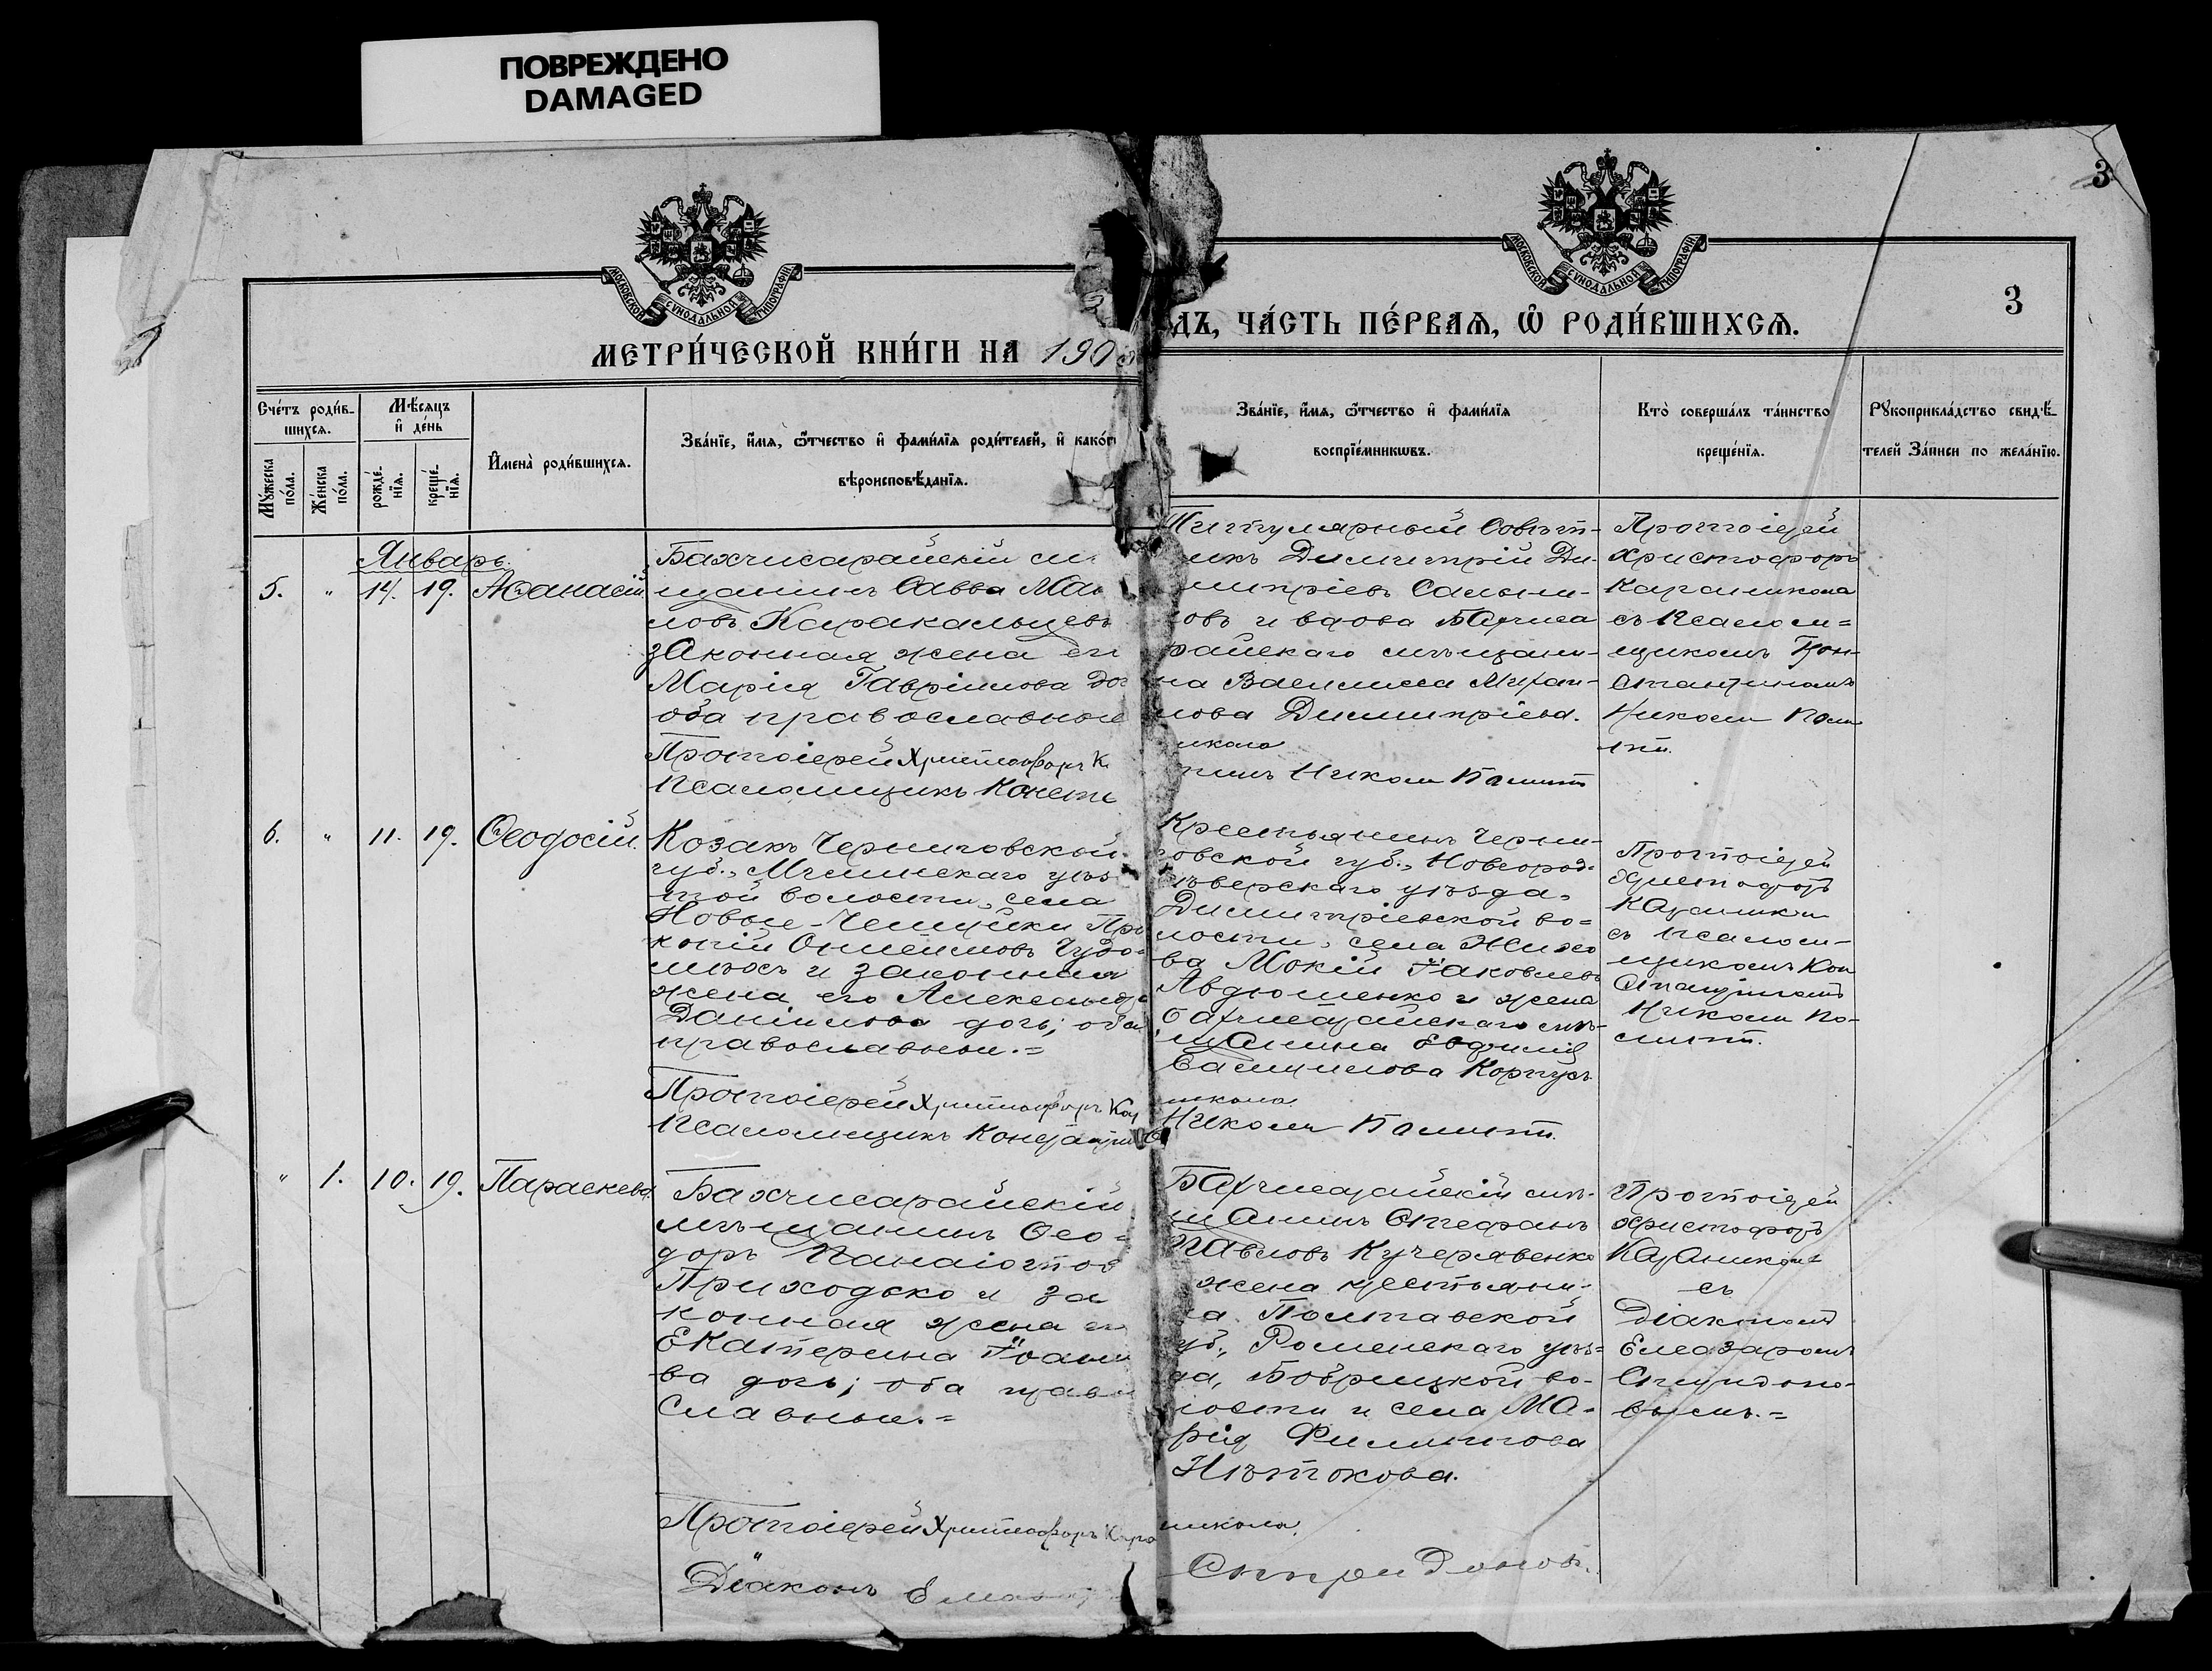 ПОВРЕЖДЕНО
DAMAGED
3
МОСКОВСКОЙ СѴНОДАЛЬНОЙ ТИПОГРАФІИ
МОСКОВСКОЙ СѴНОДАЛЬНОЙ ТИПОГРАФІИ
3
МЕТРИ́ЧЕСКОЙ КНИ́ГИ НА 190
ДЪ, ЧА́СТЬ ПЕ́РВАѦ, Ѿ РОДИ́ВШИХСѦ.
Сче́тъ роди́в-
шихсѧ.
Мѣ́сѧцъ
и҆ де́нь
Мꙋ́жеска
по́ла.
Же́нска
по́ла.
рожде́-
нїѧ.
креще́-
нїѧ.
И҆мена̀ роди́вшихсѧ.
Зва́нїе, и҆́мѧ, ѻ҆́тчество и҆ фами́лїѧ роди́телей, и҆ како́г
вѣроисповѣ́данїѧ.
Зва́нїе, и҆́мѧ, ѻ҆́тчество и҆ фами́лїѧ
воспрїе́мникѡвъ.
Кто̀ соверша́лъ та́инство
креще́нїѧ.
Рꙋкоприкла́дство свидѣ́-
телей За́писи по жела́нїю.
Январь.
5. " 14. 19. Аѳанасій.
Бахчисарайскій
щанинъ Савва
ловъ Каракальцевъ
законная жена
Марія Гавріилова
оба православные
Протоіерей Христофоръ
Псаломщикъ
Титулярный Совѣт-
никъ Димитрій Ди-
митріевъ
овъ и вдова Бахчиса
райскаго мѣщани-
на Василисса Михаи-
лова Димитріева.
Николи
Протоіерей
Христофоръ
съ Псалом=
щикомъ Кон-
стантиномъ
Николи
6. " 11. 19. Ѳеодосій.
Козакъ Черниговской
губ., Мглинскаго уѣз
волости, села
Новые-Чешуйки Про
копій Онисимовъ
и законная
жена его Александра
Даніилова дочь; оба
православные.=
Протоіерей Христофоръ Кар
Псаломщикъ
Крестьянинъ Черни-
говской губ., Новгород-
сѣверскаго уѣзда,
Димитріевской во=
лости, села
ва Мокій Іаковлевъ
Авдюшенко и жена
бахчисарайскаго мѣ-
щанина Евфимія
Василилова
Николи
Протоіерей
Христофоръ
съ псалом-
щикомъ Кон
стантиномъ
Николи
" 1. 10. 19. Параскева.
Бахчисарайскій
мѣщанинъ Ѳео=
доръ Панаіотов
Приходько и за
конная жена ег
Екатерина Іоанно
ва дочь; оба право
славные.=
Протоіерей Христофоръ Кара
Діаконъ
Бахчисарайскій мѣ-
щанинъ Стефанъ
Павловъ Кучерявенко
жена крестьяни-
на Полтавской
губ., Роменскаго уѣз=
да, Бобрицкой во-
лости и села Ма-
рія Филиппова
Нѣтокова.
Спиридоновъ.
Протоіерей
Христофоръ
съ
Діакономъ
Елеазаромъ
Спиридоно-
вымъ.=